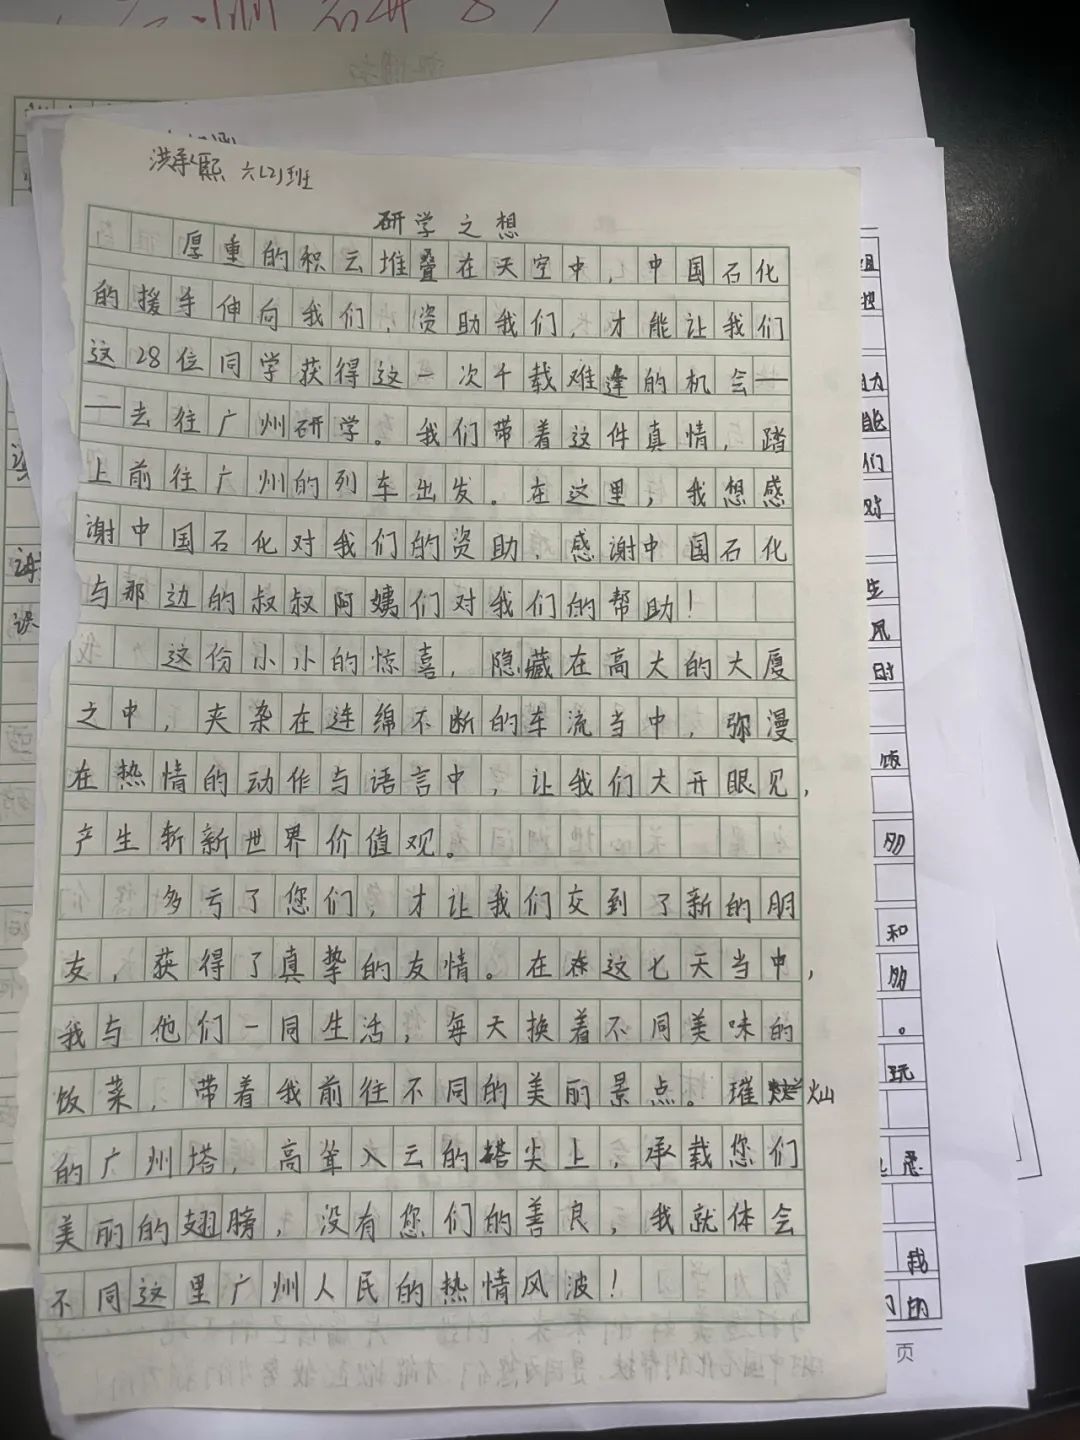 洪承熙 六(2)班
研学之想
厚重的积云堆叠在天空中，中国石化
的援手伸向我们，资助我们，才能让我们
这28位同学获得这一次千载难逢的机会—
—去往广州研学。我们带着这件真情，踏
上前往广州的列车出发。在这里，我想感
谢中国石化对我们的资助，感谢中国石化
与那边的叔叔阿姨们对我们的帮助！
这份小小的惊喜，隐藏在高大的大厦
之中，夹杂在连绵不断的车流当中，弥漫
在热情的动作与语言中，让我们大开眼见，
产生斩新世界价值观。
多亏了您们，才让我们交到了新的朋
友，获得了真挚的友情。在在这七天当中，
我与他们一同生活，每天换着不同美味的
饭菜，带着我前往不同的美丽景点。璀灿
的广州塔，高耸入云的塔尖上，承载您们
美丽的翅膀，没有您们的善良，我就体会
不同这里广州人民的热情风波！
页